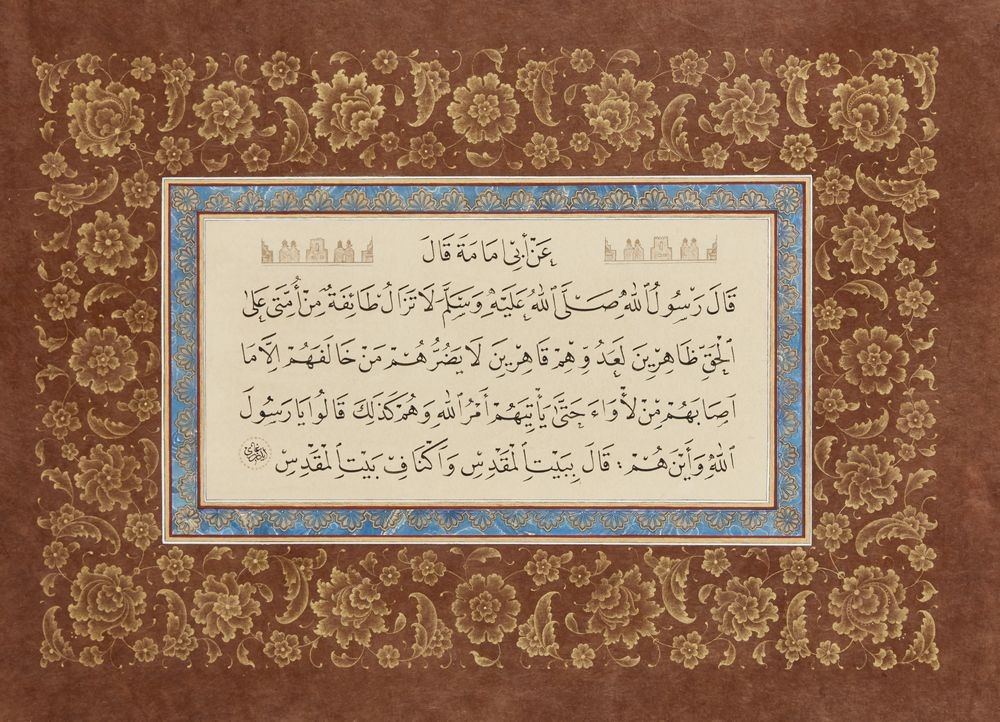 عَنْ أَبِي مَامَةَ قَالَ
قَالَ رَسُولُ اللهِ صَلَّى اللهُ عَلَيْهِ وَسَلَّمَ لَا تَزَالُ طَائِفَةٌ مِنْ أُمَّتِي عَلَى
الْحَقِّ ظَاهِرِينَ لَعَدُوِّهِمْ قَاهِرِينَ لَا يَضُرُّهُمْ مَنْ خَالَفَهُمْ اِلَّا مَا
اَصَابَهُمْ مِنْ لَأْوَاءَ حَتَّى يَأْتِيَهُمْ أَمْرُ اللهِ وَهُمْ كَذَلِكَ قَالُوا يَا رَسُولَ
اللهِ وَأَيْنَ هُمْ : قَالَ بِبَيْتِ الْمَقْدِسِ وَاَكْنَافِ بَيْتِ الْمَقْدِسِ